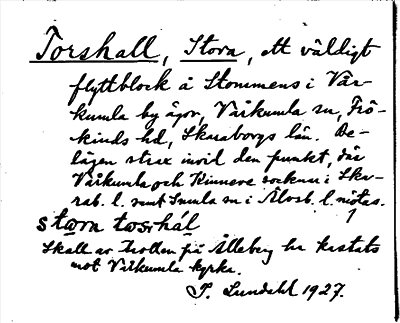 Torshall, Stora, ett väldigt
flyttblock å Stommens i Vår-
kumla by ägor, Vårkumla sn, Frö-
kinds hd, Skaraborgs län. Be-
lägen strax invid den punkt, där
Vårkumla och Kinneve socknar i Ska-
rab. l. samt Smula sn i Älvsb. l. mötas.
stora toshál
Skall av trollen på Ålleberg ha kastats
mot Vårkumla kyrka.
P. Lundahl 1927.